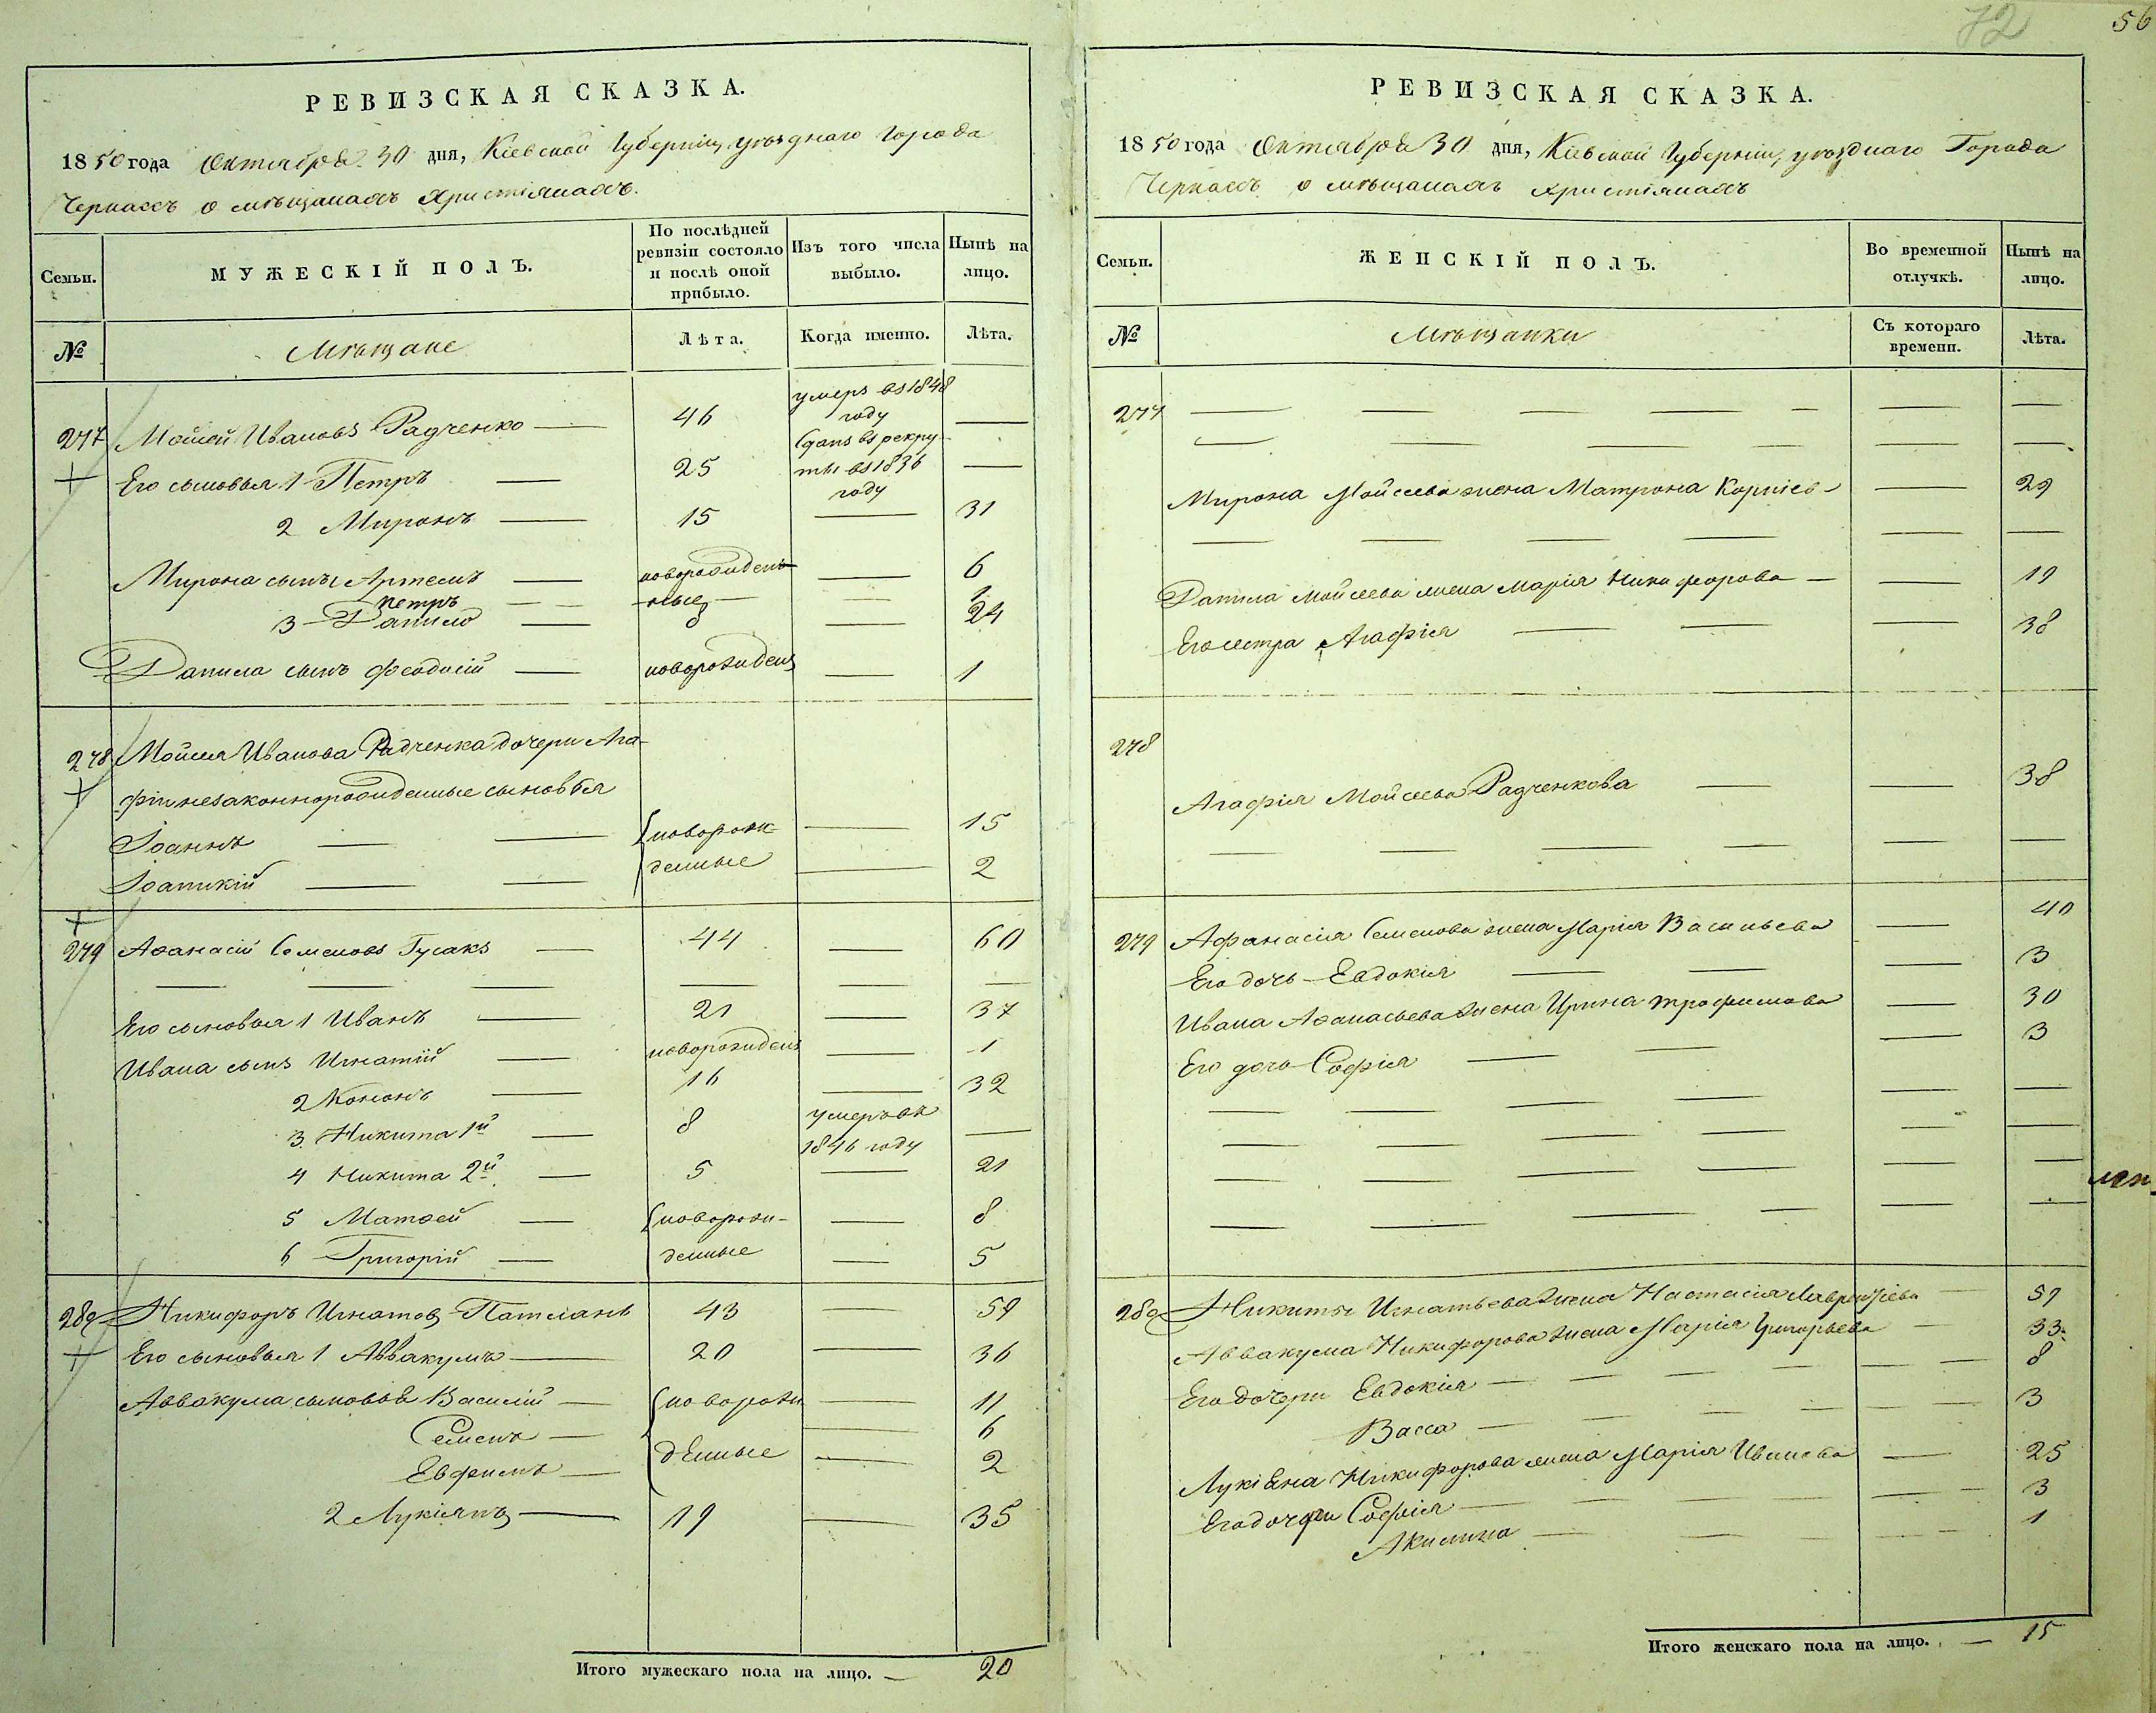 72
56
РЕВИЗСКАЯ СКАЗКА.
1850 года Октября 30 дня, Кіевской Губерніи, уѣзднаго Города
Черкассъ о мѣщанахъ Христіянахъ.
Семьи.
МУЖЕСКІЙ ПОЛЪ.
По послѣдней ревизіи состояло и послѣ оной прибыло.
Изъ того числа выбыло.
Нынѣ на лицо.
№
Мѣщане
Лѣта.
Когда именно.
Лѣта.
277 Мойсей Ивановъ Радченко — 46 умеръ въ 1848 году —
Его сыновья 1 Петръ — 25 Сданъ въ рекруты въ 1836 году —
2 Миронъ — 15 — 31
Мирона сыны Артемъ — новорожден — 6
Петръ — ные —
3 Данило — 8 — 24
Данила сынъ Феодосій — новорожденъ — 1
278 Мойсея Иванова Радченка дочери Ага-
фіи незаконнорожденные сыновья
Іоаннъ — — новорож- — 15
Іоаникій — — денные — 2
279 Аѳанасій Семеновъ Гусакъ — 44 — 60
Его сыновья 1 Иванъ — 21 — 37
Ивана сынъ Игнатій — новорожденъ — 1
2 Кононъ — 16 — 32
3 Никита 1й — 8 умеръ въ 1846 году —
4 Никита 2й — 5 — 21
5 Матѳей — новорож- — 8
6 Григорій — денные — 5
280 Никифоръ Игнатов Патланъ 43 — 59
Его сыновья 1 Аввакумъ — 20 — 36
Аввакума сыновья Василій — новорож — 11
Семенъ — — 6
Евфимъ — денные — 2
2 Лукіянъ — 19 — 35
Итого мужескаго пола на лицо. — 20
РЕВИЗСКАЯ СКАЗКА.
1850 года Октября 30 дня, Кіевской Губерніи, уѣзднаго Города
Черкассъ о мѣщанахъ христіянахъ
Семьи.
ЖЕНСКІЙ ПОЛЪ.
Во временной отлучкѣ.
Нынѣ на лицо.
№
Мѣщанки
Съ котораго времени.
Лѣта.
277
Мирона Мойсеева жена Матрона Корніев — — 29
Данила Мойсеева жена Марія Никифорова — — 19
Его сестра Агафія — — — 38
278
Агафія Мойсеева Радченкова — — 38
279 Афанасія Семенова жена Марія Васильева — 40
Его дочь Евдокія — — — 3
Ивана Аѳанасьева жена Ирина Трофимова — 30
Его дочь Софія — — — 3
280 Никиты Игнатьева жена Настасія Лаврентіева — 57
Аввакума Никифорова жена Марія Григорьева — 33
Его дочери Евдокія — — — 8
Васса — — — 3
Лукіяна Никифорова жена Марія Иванова — 25
Его дочери Софія — — — 3
Акилина — — — 1
Итого женскаго пола на лицо. — 15